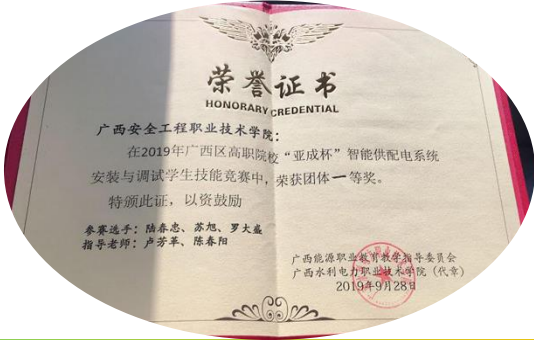 荣誉证书
HONORARY CREDENTIAL
广西安全工程职业技术学院：
在2019年广西区高职院校“亚成杯”智能供配电系统
安装与调试学生技能竞赛中，荣获团体一等奖。
特颁此证，以资鼓励
参赛选手：陆春忠、苏旭、罗大盛
指导老师：卢芳革、陈春阳
广西能源职业教育教学指导委员会
广西水利电力职业技术学院（代章）
2019年9月28日